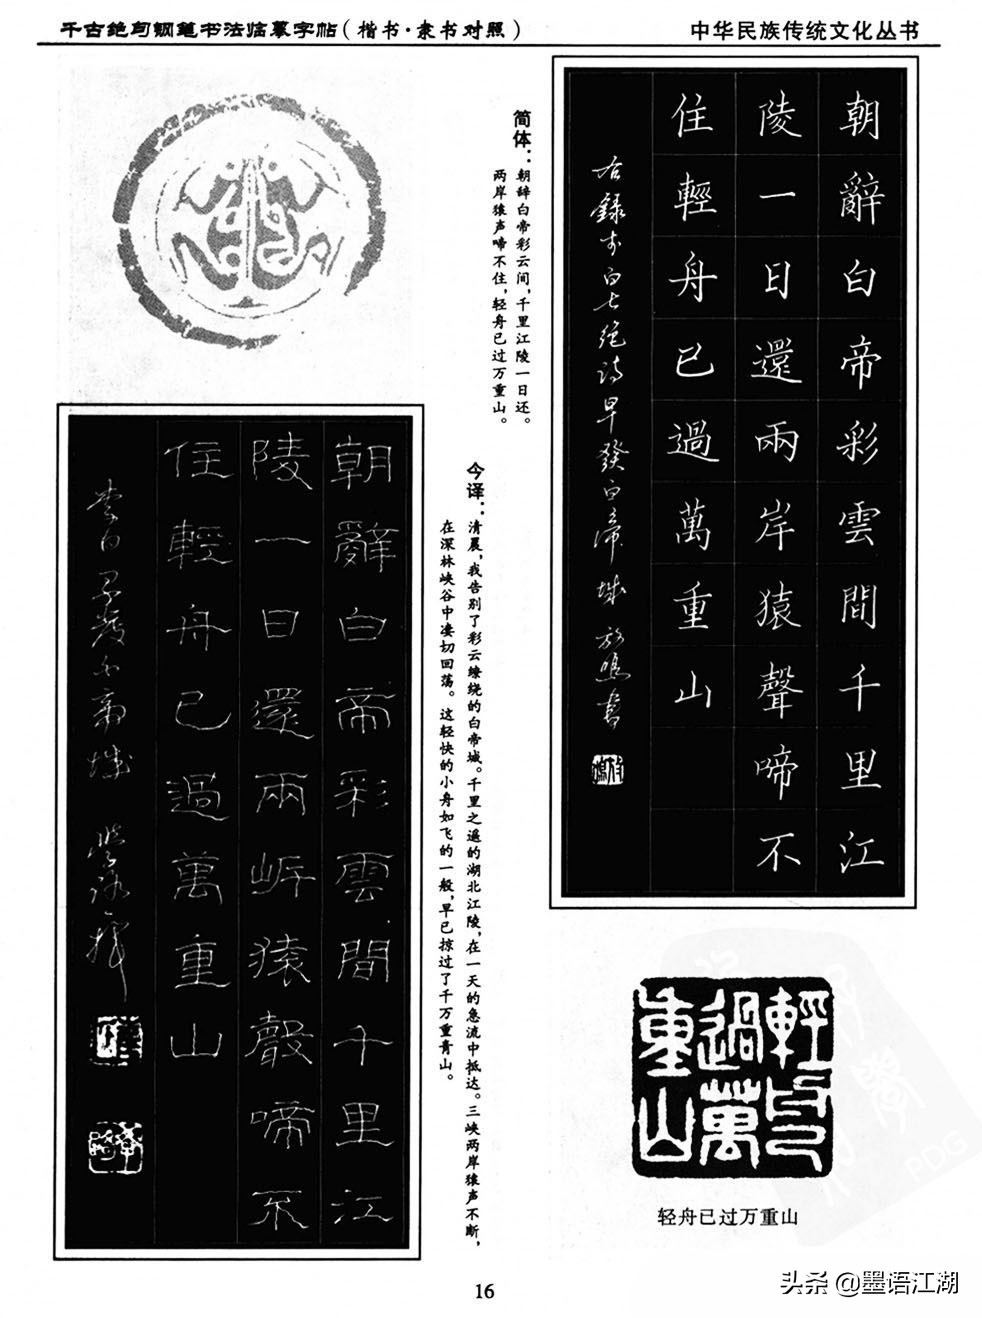 千古绝句钢笔书法临摹字帖（楷书·隶书对照）
中华民族传统文化丛书
朝辭白帝彩雲間千里江
陵一日還兩岸猿聲啼不
住輕舟已過萬重山
右錄李白七绝詩早發白帝城 放鳴書
简体：朝辞白帝彩云间，千里江陵一日还。
两岸猿声啼不住，轻舟已过万重山。
今译：清晨，我告别了彩云缭绕的白帝城。千里之遥的湖北江陵，在一天的急流中抵达。三峡两岸猿声不断，
在深林峡谷中凄切回荡。这轻快的小舟如飞的一般，早已掠过了千万重青山。
朝辭白帝彩雲間千里江
陵一日還兩岸猿聲啼不
住輕舟已過萬重山
李白早發白帝城
輕舟已過萬重山
轻舟已过万重山
16
头条 @墨语江湖